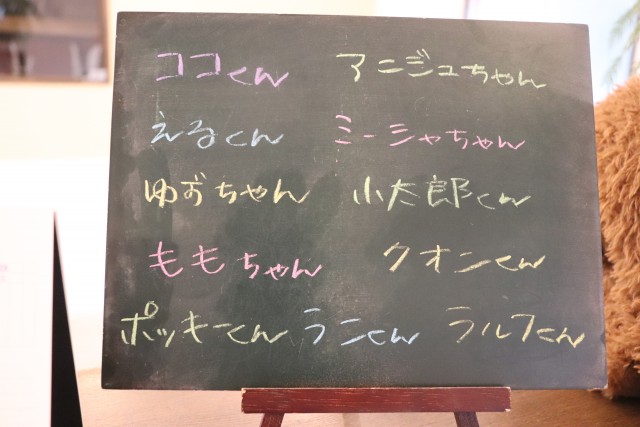 ココくん アニジュちゃん
えるくん ミーシャちゃん
ゆずちゃん 小太郎くん
ももちゃん クオンくん
ポッキーくん ランくん ラルフくん